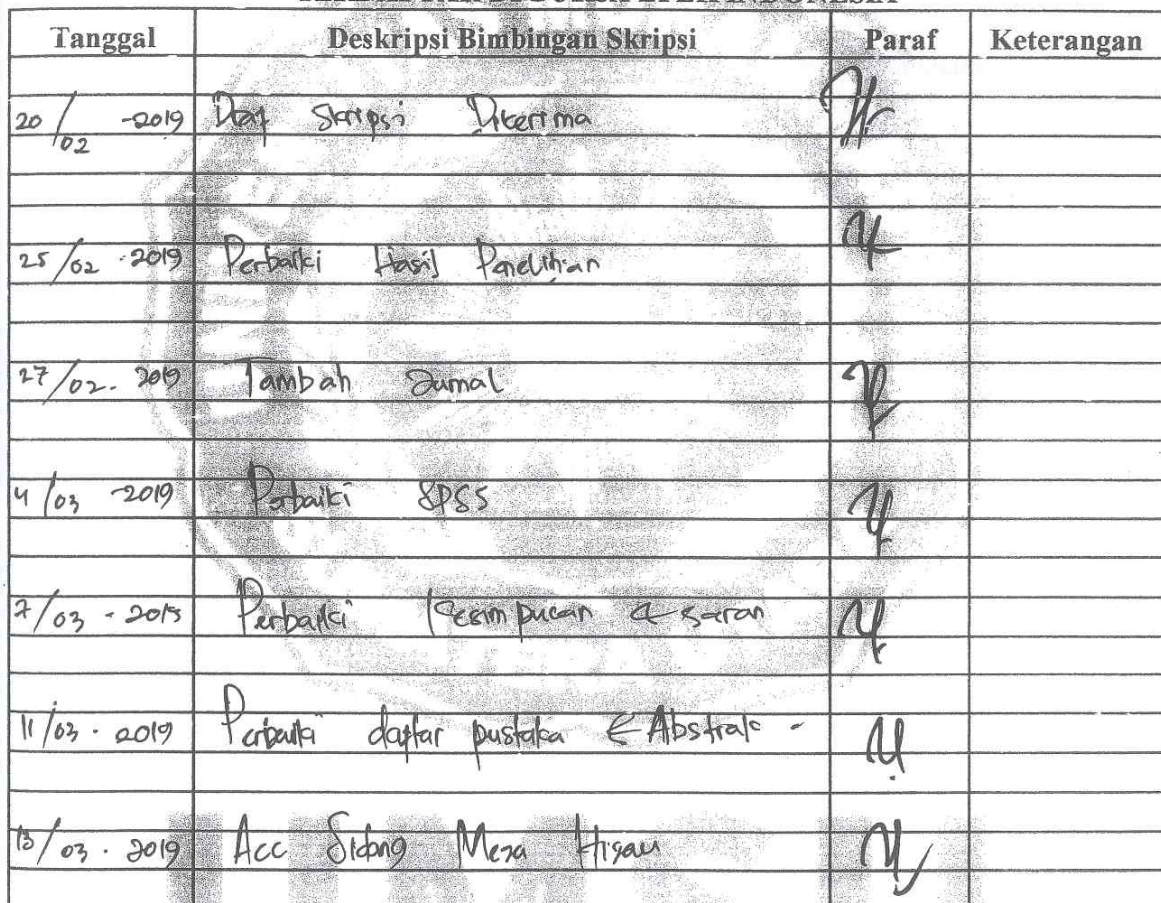 INDONESIA
Tanggal Deskripsi Bimbingan Skripsi Paraf Keterangan
20/02 -2019 Draf Skripsi Diterima
25/02 -2019 Perbaiki Hasil Penelitian
27/02. 2019 Tambah Jurnal
4/03 -2019 Perbaiki SPSS
7/03 - 2019 Perbaiki Kesimpulan & saran
11/03 . 2019 Perbaiki daftar pustaka & Abstrak -
13/03 . 2019 Acc Sidang Meja Hijau